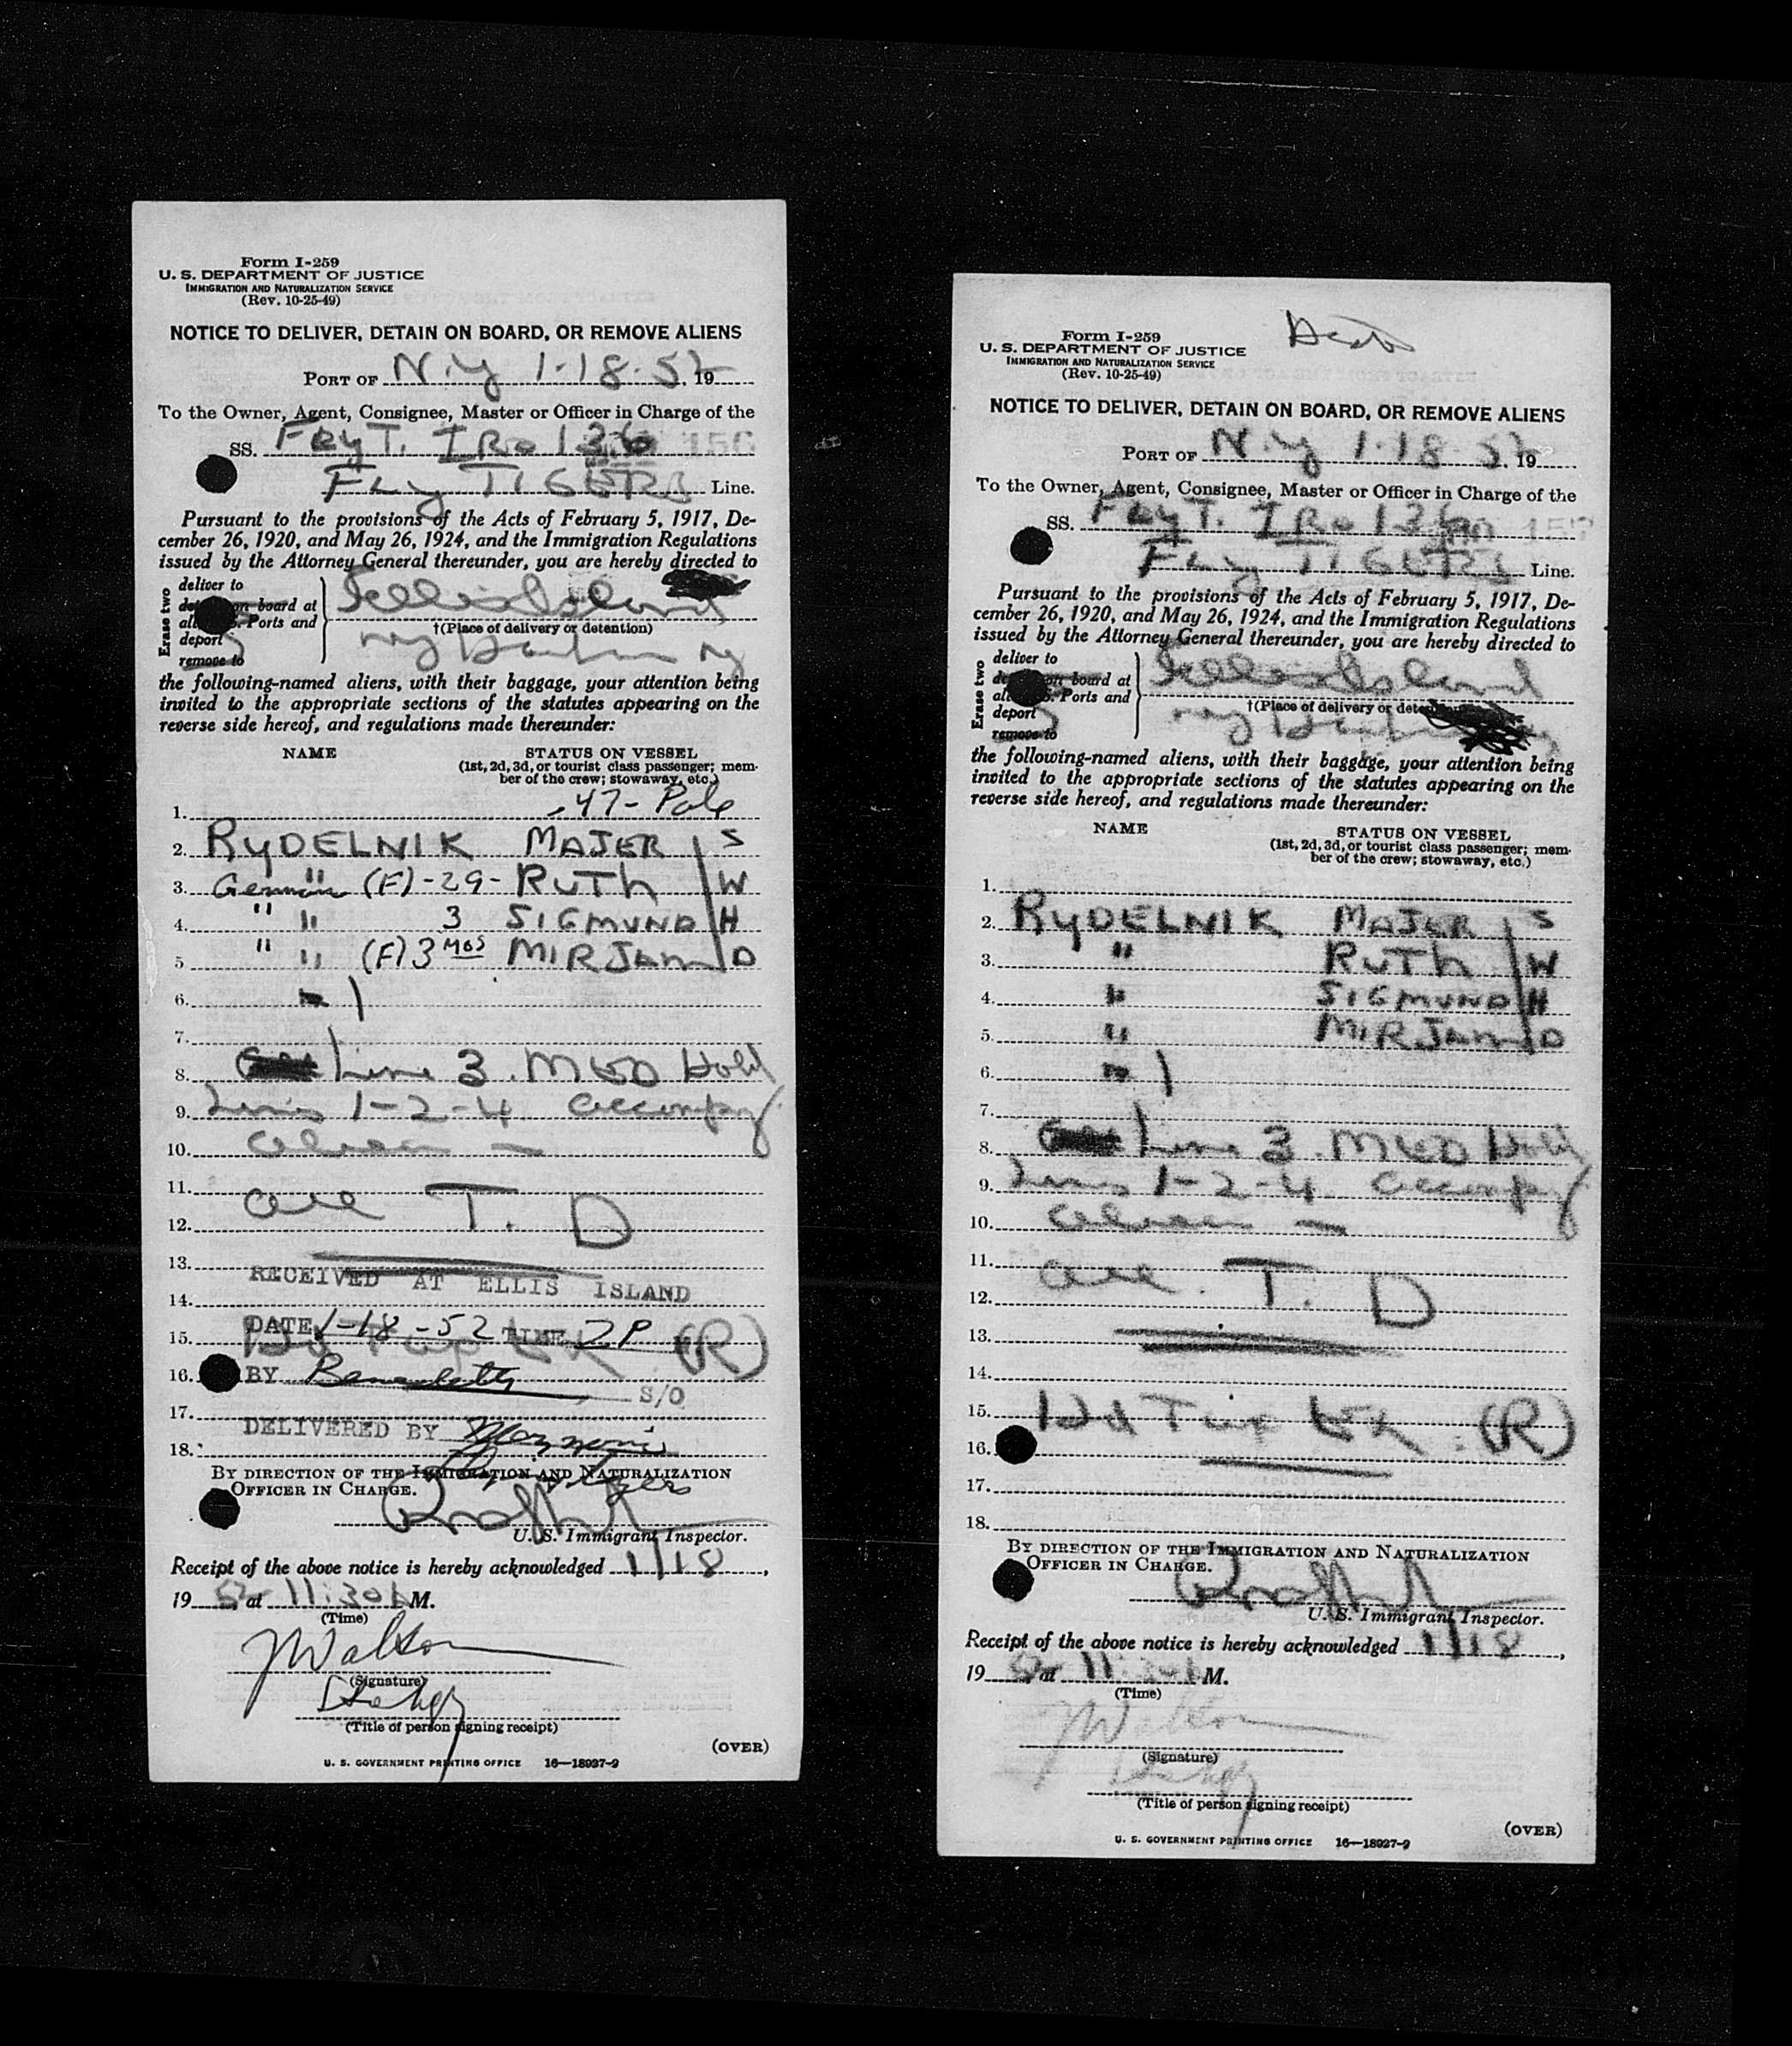 Form I-259
U. S. DEPARTMENT OF JUSTICE
IMMIGRATION AND NATURALIZATION SERVICE
(Rev. 10-25-49)
NOTICE TO DELIVER, DETAIN ON BOARD, OR REMOVE ALIENS
PORT OF N.Y 1-18-52. 19
To the Owner, Agent, Consignee, Master or Officer in Charge of the
SS. FLY T. IRO 136
FLY TIGERS Line.
Pursuant to the provisions of the Acts of February 5, 1917, De-
cember 26, 1920, and May 26, 1924, and the Immigration Regulations
issued by the Attorney General thereunder, you are hereby directed to
Erase two
deliver to
on board at
Ports and
deport
remove to
Ellis Island
†(Place of delivery or detention)
NY Harbor NY
the following-named aliens, with their baggage, your attention being
invited to the appropriate sections of the statutes appearing on the
reverse side hereof, and regulations made thereunder:
NAME STATUS ON VESSEL
(1st, 2d, 3d, or tourist class passenger; mem-
ber of the crew; stowaway, etc.)
1. 47- Pole
2. RYDELNIK MAJER S
3. German " (F)-29- RUTH W
4. " " 3 SIGMUND H
5 " " (F) 3 MOS MIRJAM D
6. "
7.
8. Line 3. MED Hold
9. Lines 1-2-4 accompy
10. alien —
11.
12. all T. D
13.
RECEIVED AT ELLIS ISLAND
14.
15. DATE 1-18-52 TIME 2P (R)
16. BY S/O
17.
DELIVERED BY
18.
BY DIRECTION OF THE IMMIGRATION AND NATURALIZATION
OFFICER IN CHARGE.
U. S. Immigrant Inspector.
Receipt of the above notice is hereby acknowledged 1/18,
19 52 at 11:30 A M.
(Time)
J Watson
(Signature)
(Title of person signing receipt)
(OVER)
U. S. GOVERNMENT PRINTING OFFICE 16—18927-2
Form I-259
U. S. DEPARTMENT OF JUSTICE
IMMIGRATION AND NATURALIZATION SERVICE
(Rev. 10-25-49)
NOTICE TO DELIVER, DETAIN ON BOARD, OR REMOVE ALIENS
PORT OF N.Y 1-18-52. 19
To the Owner, Agent, Consignee, Master or Officer in Charge of the
SS. FLY T. IRO 136
FLY TIGERS Line.
Pursuant to the provisions of the Acts of February 5, 1917, De-
cember 26, 1920, and May 26, 1924, and the Immigration Regulations
issued by the Attorney General thereunder, you are hereby directed to
Erase two
deliver to
on board at
Ports and
deport
remove to
Ellis Island
†(Place of delivery or
NY
the following-named aliens, with their baggage, your attention being
invited to the appropriate sections of the statutes appearing on the
reverse side hereof, and regulations made thereunder:
NAME STATUS ON VESSEL
(1st, 2d, 3d, or tourist class passenger; mem-
ber of the crew; stowaway, etc.)
1.
2. RYDELNIK MAJER S
3. " RUTH W
4. " SIGMUND H
5. " MIRJAM D
6. "
7.
8. Line 3. MED Hold
9. Lines 1-2-4 accompy
10. alien —
11.
12. all. T. D
13.
14.
15.
16. (R)
17.
18.
BY DIRECTION OF THE IMMIGRATION AND NATURALIZATION
OFFICER IN CHARGE.
U. S. Immigrant Inspector.
Receipt of the above notice is hereby acknowledged 1/18,
19 52 at 11:30 A M.
(Time)
J Watson
(Signature)
(Title of person signing receipt)
(OVER)
U. S. GOVERNMENT PRINTING OFFICE 16—18927-2